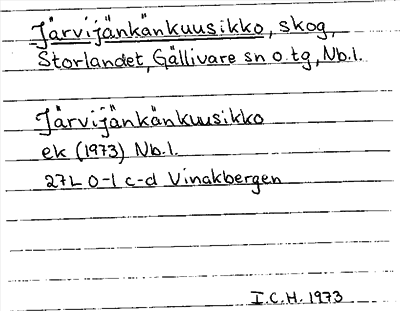 Järvijänkänkuusikko, skog,
Storlandet, Gällivare sn o. tg, Nb. l.
Järvijänkänkuusikko
ek (1973) Nb. l.
27L 0-1 c-d Vinakbergen
I.C.H. 1973